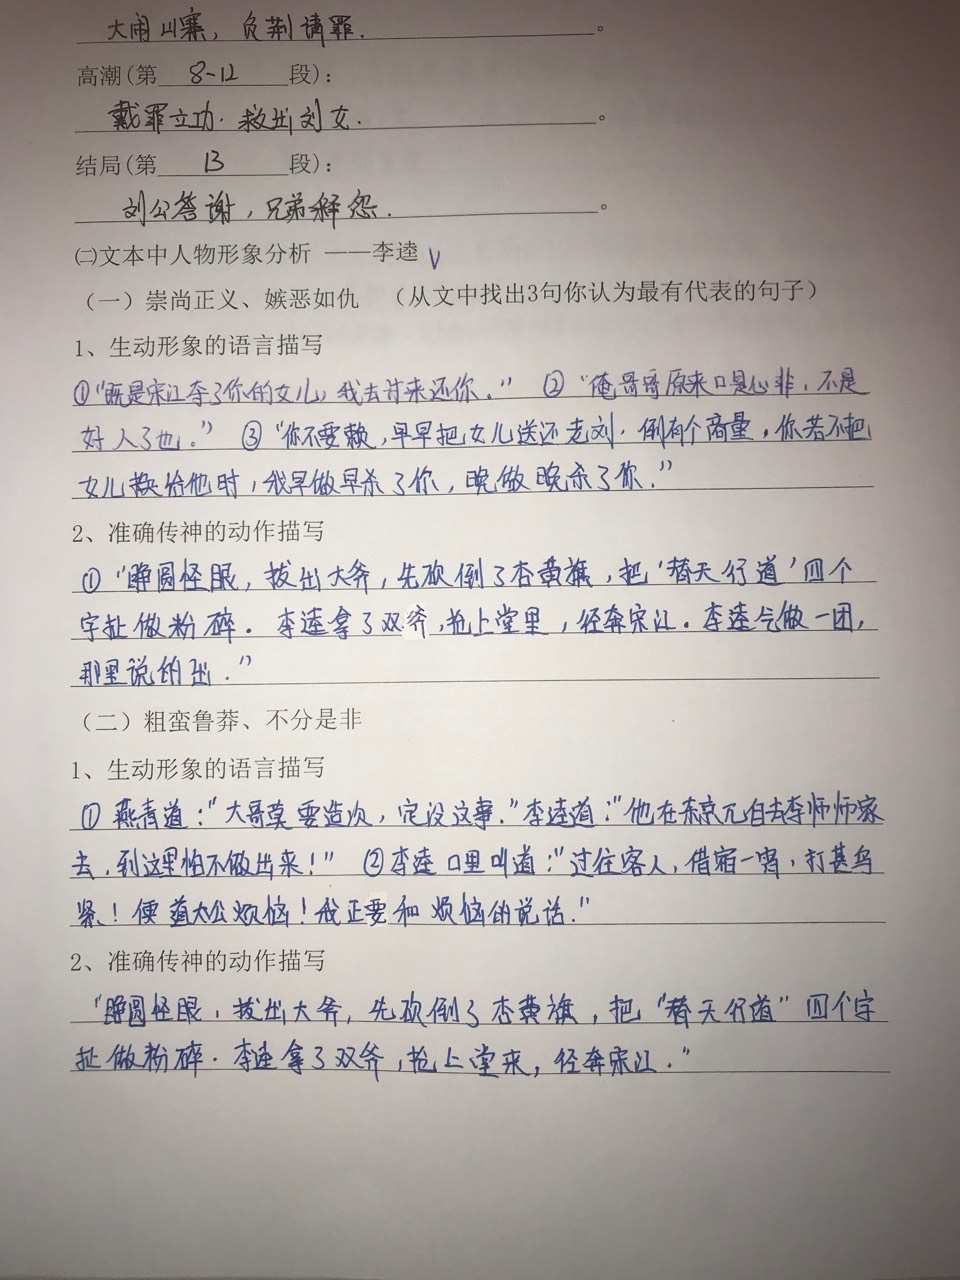 大闹山寨，负荆请罪.。
高潮(第 8-12 段):
戴罪立功.救出刘女.。
结局(第 13 段):
刘公答谢，兄弟释怨.。
㈡文本中人物形象分析 ——李逵 √
（一）崇尚正义、嫉恶如仇 （从文中找出3句你认为最有代表的句子）
1、生动形象的语言描写
①"既是宋江夺了你的女儿，我去讨来还你." ②"俺哥哥原来口是心非，不是
好人了也." ③"你不要赖，早早把女儿送还老刘.倒有个商量，你若不把
女儿换给他时，我早做早杀了你，晚做晚杀了你."
2、准确传神的动作描写
①"睁圆怪眼，拔出大斧，先砍倒了杏黄旗，把'替天行道'四个
字扯做粉碎. 李逵拿了双斧，抢上堂里，径奔宋江.李逵气做一团，
那里说的出."
（二）粗蛮鲁莽、不分是非
1、生动形象的语言描写
①燕青道："大哥莫要造次，定没这事."李逵道："他在东京兀自去李师师家
去，到这里怕不做出来！" ②李逵口里叫道："过往客人，借宿一宵，打甚鸟
紧！便道太公烦恼！我正要和烦恼的说话."
2、准确传神的动作描写
"睁圆怪眼，拔出大斧，先砍倒了杏黄旗，把"替天行道"四个字
扯做粉碎.李逵拿了双斧，抢上堂来，径奔宋江."